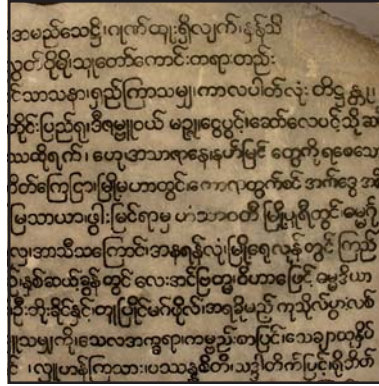 အမည်သေဋ္ဌိ၊ဂုဏ်ထူးရှိလျက်၊နန်သိ
လွှတ်ဝိုမို၊သူတော်ကောင်းတရားတည်း
င်သာသနာ၊ရှည်ကြာသမျှ၊ကာလပါတ်လုံး တိဋ္ဌန္တု၊၊
တိုင်းပြည်ရွှ၊ဒီဇမ္ဗူဝယ် မဉ္ဇူငွေပွင့်၊ဆော်လေပင့်သို့ဆ
ဿထိုရက်၊ ဟေု၊အာသာဇာနေ၊နဟ်မြင် တွေကိုရစေသော
ဘိတ်ကြေငြာ၊မြို့မဟာတွင်၊ကောဇာတွက်စင် အက်ဒွေအ
မြသာယာ၊ဖွါးမြင်ရာမှ ဟံသာဝတီ မြို့ပူရီတွင်၊ဓမ္မဂု
လှ၊အာသီသကြောင့်၊အနရန်လုံ၊မြို့ရွှေလှန်တွင် ကြည်
၊နှစ်ဆယ်ခွန်တွင် လေးအင်ဗြတ္မ၊ဝိဟာဖြေင့် ဓမ္မဒိယာ
ဦးဘိုးခိုင်နှင့်၊တူပြိုင်မဂ်ဖိုလ်၊အရှခိုမည် ကုသိုလ်ပွါလစ်
ူသမျှကို၊သေလအက္ခရာ၊ကမ္ဗည်းစာပြင့်၊သေချာယူနှိပ်
၊လှူဟန်ကြသား၊ပဿန္နစိတ်၊သဒ္ဒါတိက်ပြင့်၊ရိုဘိတ်